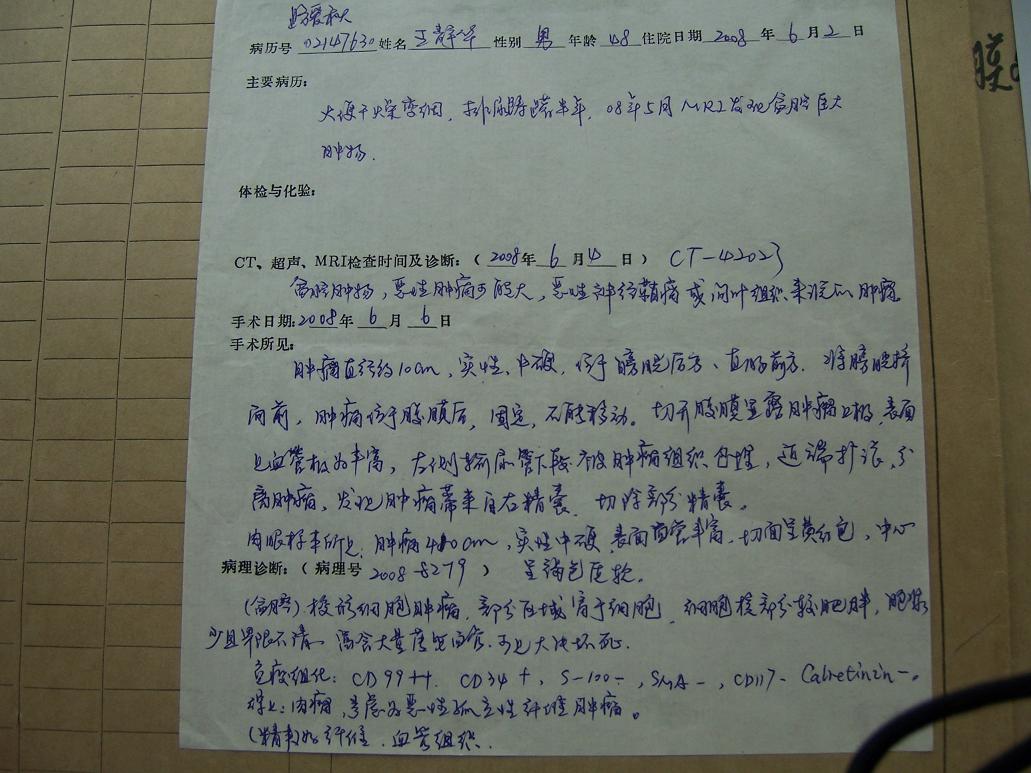 病历号 02147630 姓名 王静华 性别 男 年龄 48 住院日期 2008 年 6 月 2 日
主要病历：
大便干燥变细，排尿踌躇半年，08年5月MRI发现盆腔巨大
肿物．
体检与化验：
CT、超声、MRI检查时间及诊断：（ 2008年 6 月 4 日 ） CT-42023
盆腔肿物，恶性肿瘤可能大，恶性神经鞘瘤或间叶组织来源的肿瘤
手术日期：2008 年 6 月 6 日
手术所见：
肿瘤直径约10cm，实性、中硬，位于膀胱后方、直肠前方．将膀胱挤
向前，肿瘤位于腹膜后，固定，不能移动。切开腹膜显露肿瘤上极，表面
见血管极为丰富，右侧输尿管下段被肿瘤组织包埋，近端扩张，分
离肿瘤，发现肿瘤蒂来自右精囊．切除部分精囊。
肉眼标本所见．肿瘤 cm，实性中硬，表面血管丰富．切面呈黄红色，中心
病理诊断：（ 病理号 2008-8279 ） 呈褐色质软．
（盆腔）梭形细胞肿瘤．部分区域富于细胞．细胞核部分较肥胖，胞浆
少且界限不清．富含大量薄壁血管．可见大片坏死．
免疫组化：CD99++．CD34+，S-100-，SMA-，CD117- Calretinin-。
符合：肉瘤，考虑为恶性孤立性纤维肿瘤。
（精囊）为纤维．血管组织．
膜